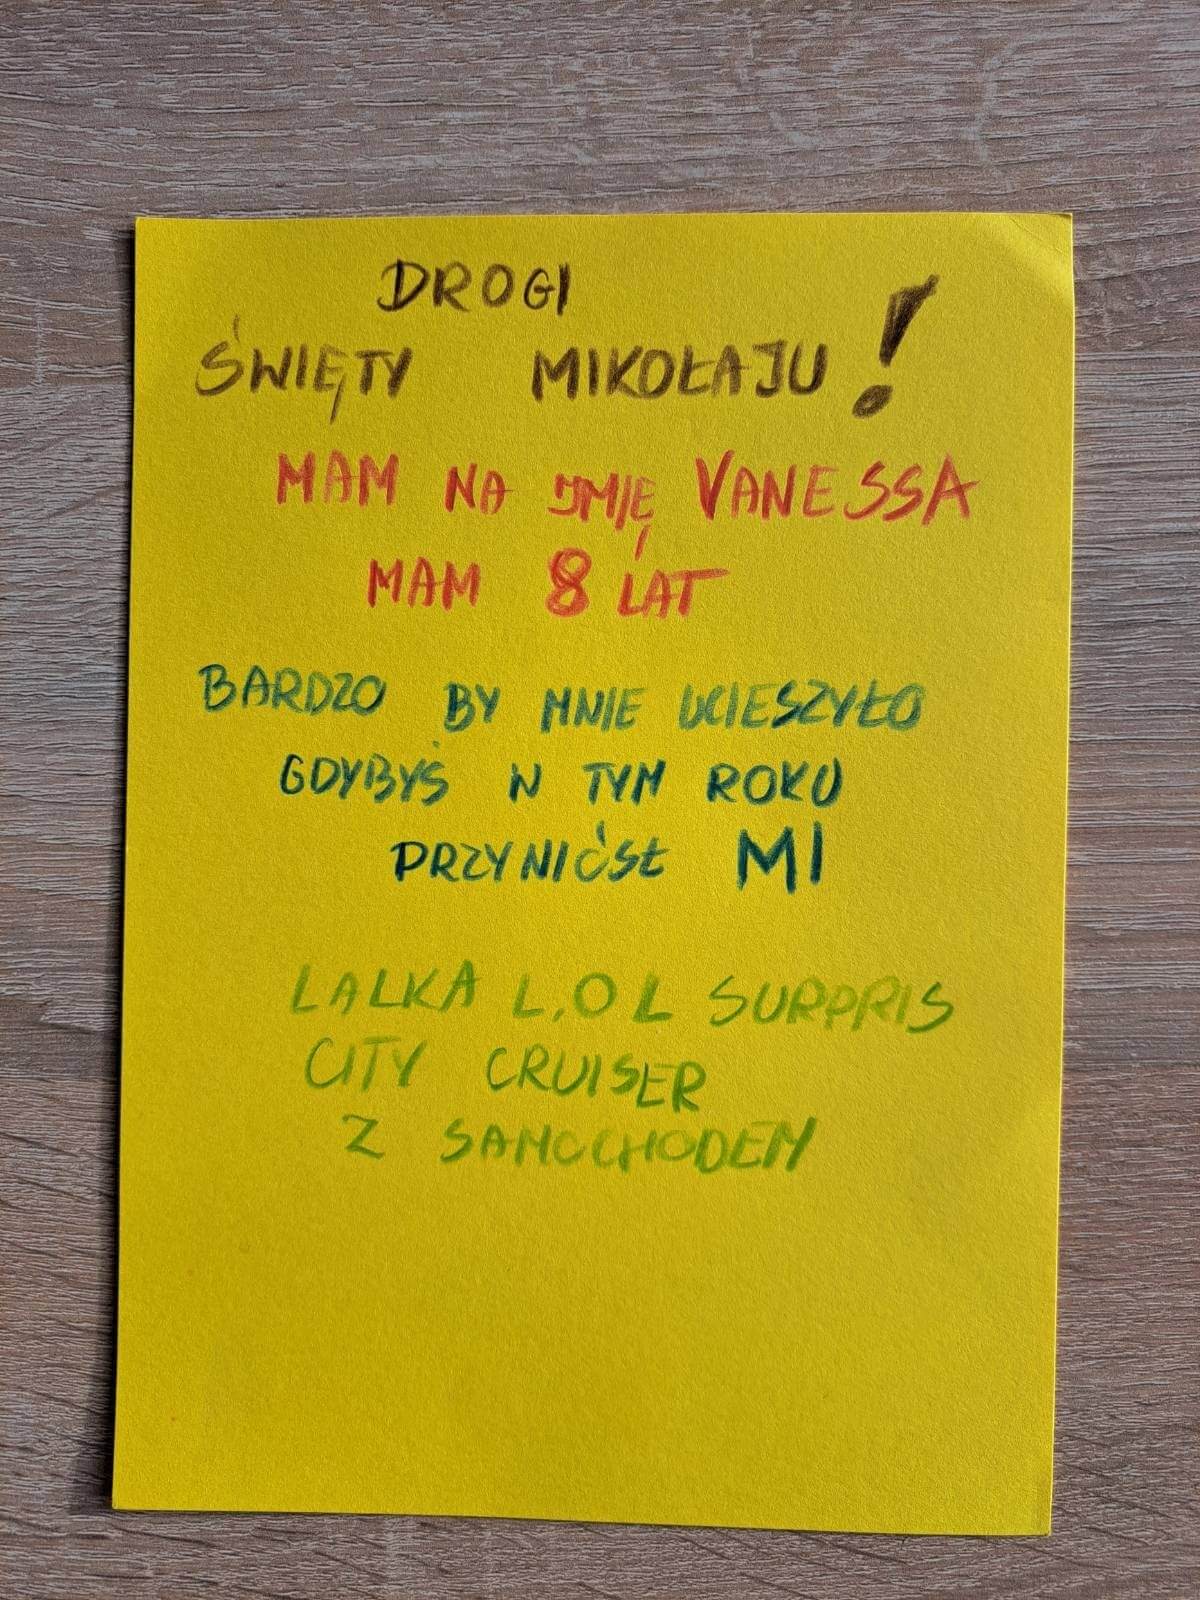 DROGI
ŚWIĘTY MIKOŁAJU!
MAM NA IMIĘ VANESSA
MAM 8 LAT
BARDZO BY MNIE UCIESZYŁO
GDYBYŚ W TYM ROKU
PRZYNIÓSŁ MI
LALKA L.O L SURPRIS
CITY CRUISER
Z SAMOCHODEM